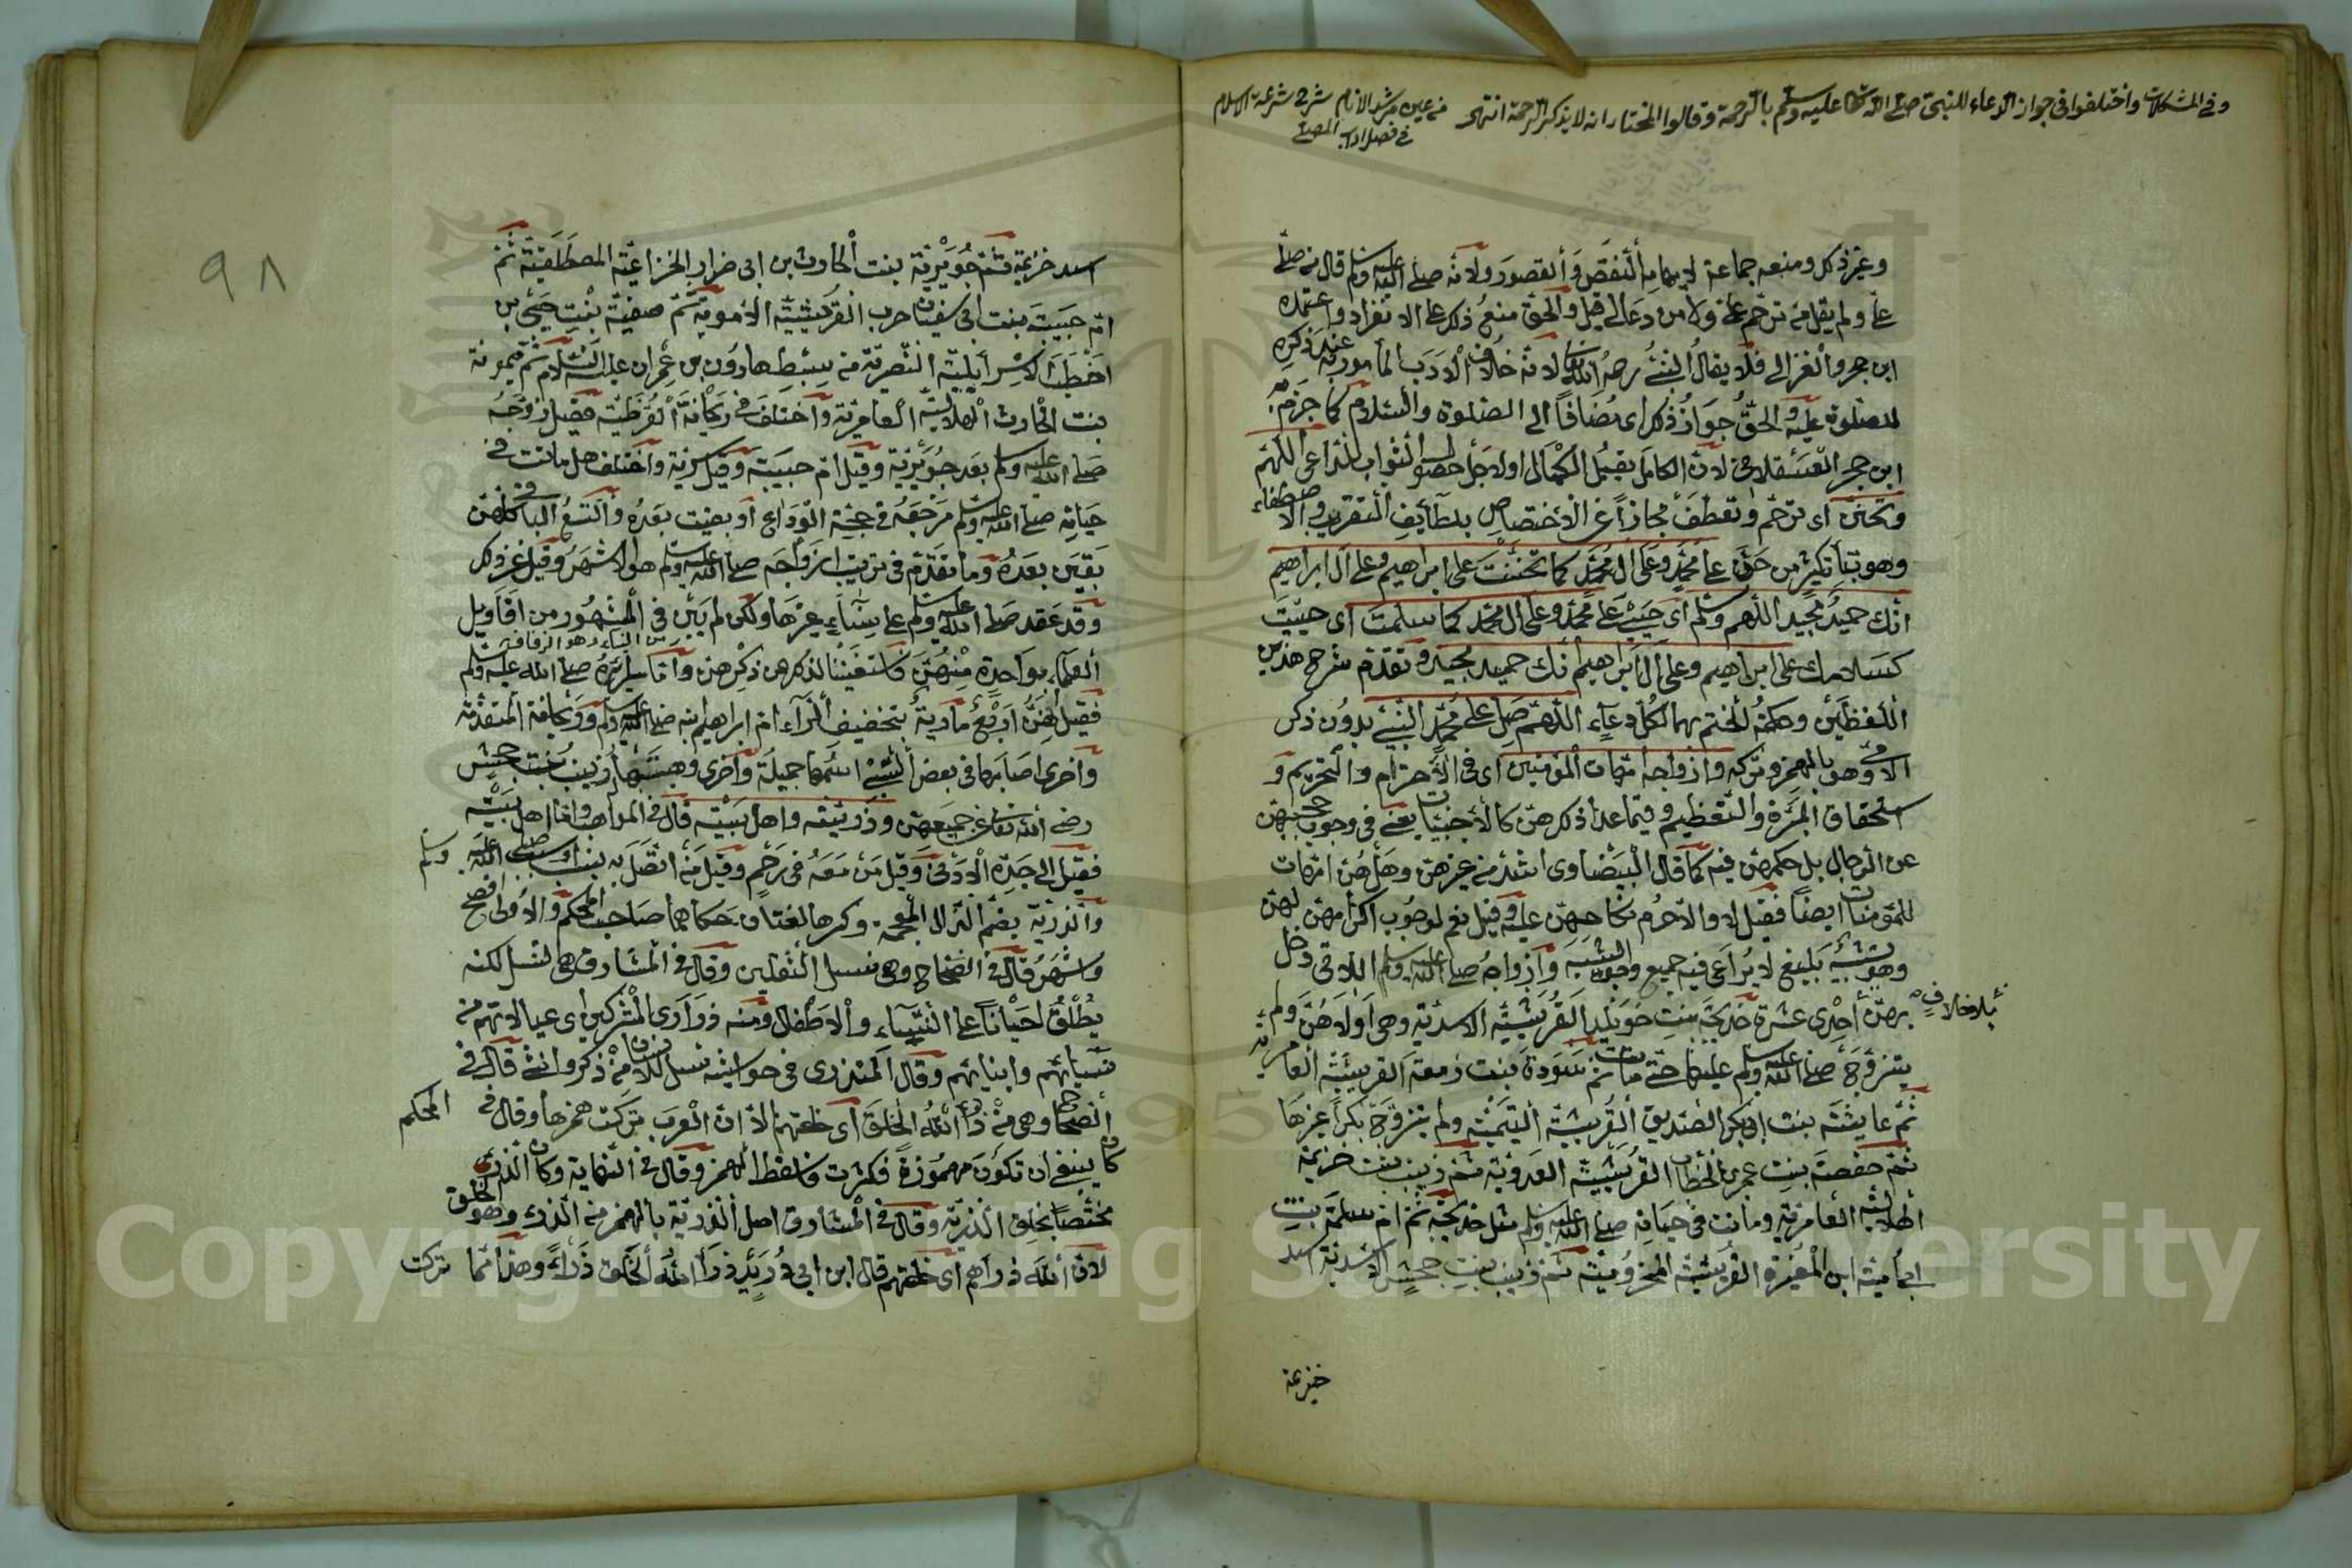 وفى المشكلات واختلفوا فى جواز الدعاء للنبى صلى الله تعالى عليه وسلم بالرحمة وقالوا المختار انه لا يذكر الرحمة انتهى من عين مرشد الانام شرح شرعة الاسلام
فى فصل اداب المصلى
وغير ذلك ومنعه جماعة لايهامه النقص والقصور ولانه صلى الله عليه وسلم قال من صلى
على ولم يقل من ترحم على ولا من دعا لى قيل والحق منع ذلك على الانفراد واعتمده
ابن حجر والغزالى فلا يقال النبى رحمه الله تعالى لانه خلاف الادب المأمور به عند ذكره
للصلوة عليه والحق جواز ذلك اى مضافا الى الصلوة والسلام كما جزم به
ابن حجر العسقلانى لان الكامل يقبل الكمال او لاجل حصول الثواب للداعى اللهم
وتحنن اى ترحم وتعطف مجازا عن الاختصاص بلطايف التقريب والاصطفاء
وهو بتأ تكثير من حن على محمد وعلى ال محمد كما تحننت على ابراهيم وعلى ال ابراهيم
انك حميد مجيد اللهم وسلم اى حى على محمد وعلى ال محمد كما سلمت اى حييت
كسلامك على ابراهيم وعلى ال ابراهيم انك حميد مجيد وتقدم شرح هذين
اللفظين وحكمة الختم بهما لكل دعاء اللهم صل على محمد النبى بدون ذكر
الامى وهو بالهمز وتركه وازواجه امهات المؤمنين اى فى الاحترام والتحريم و
استحقاق المبرة والتعظيم وفيما عدا ذكر هن كالاجنبيات يعنى فى وجوب حجبهن
عن الرجال بل حكمهن فيه كما قال البيضاوى اشد من غيرهن وهل هن امهات
للمؤمنات ايضا فقيل لا والاحرم نكاحهن عليه وقيل نعم لوجوب اكرامهن لهن
وهو تشبيه بليغ لا يراعى فيه جميع وجوه الشبه وازواجه صلى الله عليه وسلم اللاتى دخل
بلا خلاف
بهن احدى عشرة خديجة بنت خويلد القرشية الاسدية وهى اولاهن ولم
يتزوج صلى الله عليه وسلم عليها حتى ماتت ثم سودة بنت زمعة القرشية العامرية
ثم عايشة بنت ابى بكر الصديق القرشية التيمية ولم يتزوج بكرا غيرها
ثم حفصة بنت عمر بن الخطاب القرشية العدوية ثم زينب بنت خزيمة
الهلالية العامرية وماتت فى حياته صلى الله عليه وسلم مثل خديجة ثم ام سلمة بنت
ابى امية ابن المغيرة القرشية المخزومية ثم زينب بنت جحش الاسدية اسد
خزيمة
٩٨
اسد خزيمة ثم جويرية بنت الحارث بن ابى ضرار الخزاعية المصطلقية ثم
ام حبيبة بنت ابى سفيان حرب القرشية الاموية ثم صفية بنت حيى بن
اخطب الاسرايلية النضرية من سبط هارون بن عمران عليه السلام ثم ميمونة
بنت الحارث الهلالية العامرية واختلف فى ريحانة القرظية فقيل زوجه
صلى الله عليه وسلم بعد جويرية وقيل ام حبيبة وقيل سرية واختلف هل ماتت فى
حياته صلى الله عليه وسلم مرجعه فى حجة الوداع او بقيت بعده والتسع الباقى كلهن
بقين بعده وما تقدم فى ترتيب ازواجه صلى الله عليه وسلم هو الاشهر وقيل غير ذلك
وقد عقد صلى الله عليه وسلم على نساء غيرها ولكن لم يبن فى المشهور من اقاويل
من البناء وهو الزفاف
العلماء بواحدة منهن فاستغنينا لذكرهن ذكرهن واما سراريه صلى الله عليه وسلم
فقيل هن اربع مارية بتخفيف الراء ام ابراهيم ابنه صلى الله عليه وسلم وريحانة المتقدمة
واخرى اصابها فى بعض السبى اسمها جميلة واخرى وهبتها زينب بنت جحش
رضى الله تعالى عن جميعهن وذريته واهل بيته قال فى المواهب واما اهل بيته
فقيل الى جده الادنى وقيل من معه فى رحم وقيل من اتصل به بنسب صلى الله عليه وسلم
والذرية بضم الذال المعجمة وكسرها لغتان حكاهما صاحب المحكم والاولى افصح
واشهر قال فى الصحاح وهى نسل الثقلين وقال فى المشارق هى النسل لكنه
يطلق احيانا على النساء والاطفال ومنه ذرارى المشركين اى عيالاتهم من
نسايهم وابنايهم وقال المنذرى فى حواشيه نسل الانسان من ذكر وانثى قال فى
الصحاح وهى من ذرأ الله الخلق اى خلقهم الا ان العرب تركت همزها وقال فى المحكم
كان ينبغى ان تكون مهموزة فكثرت فاسقط الهمز وقال فى النهاية وكان الذرء
مختصا بخلق الذرية وقال فى المشارق اصل الذرية بالهمز من الذرء وهو الخلق
لان الله ذرأهم اى خلقهم قال ابن ابى دريد ذرأ الله الخلق ذرءا وهذا مما تركت
Copyright © King Saud University